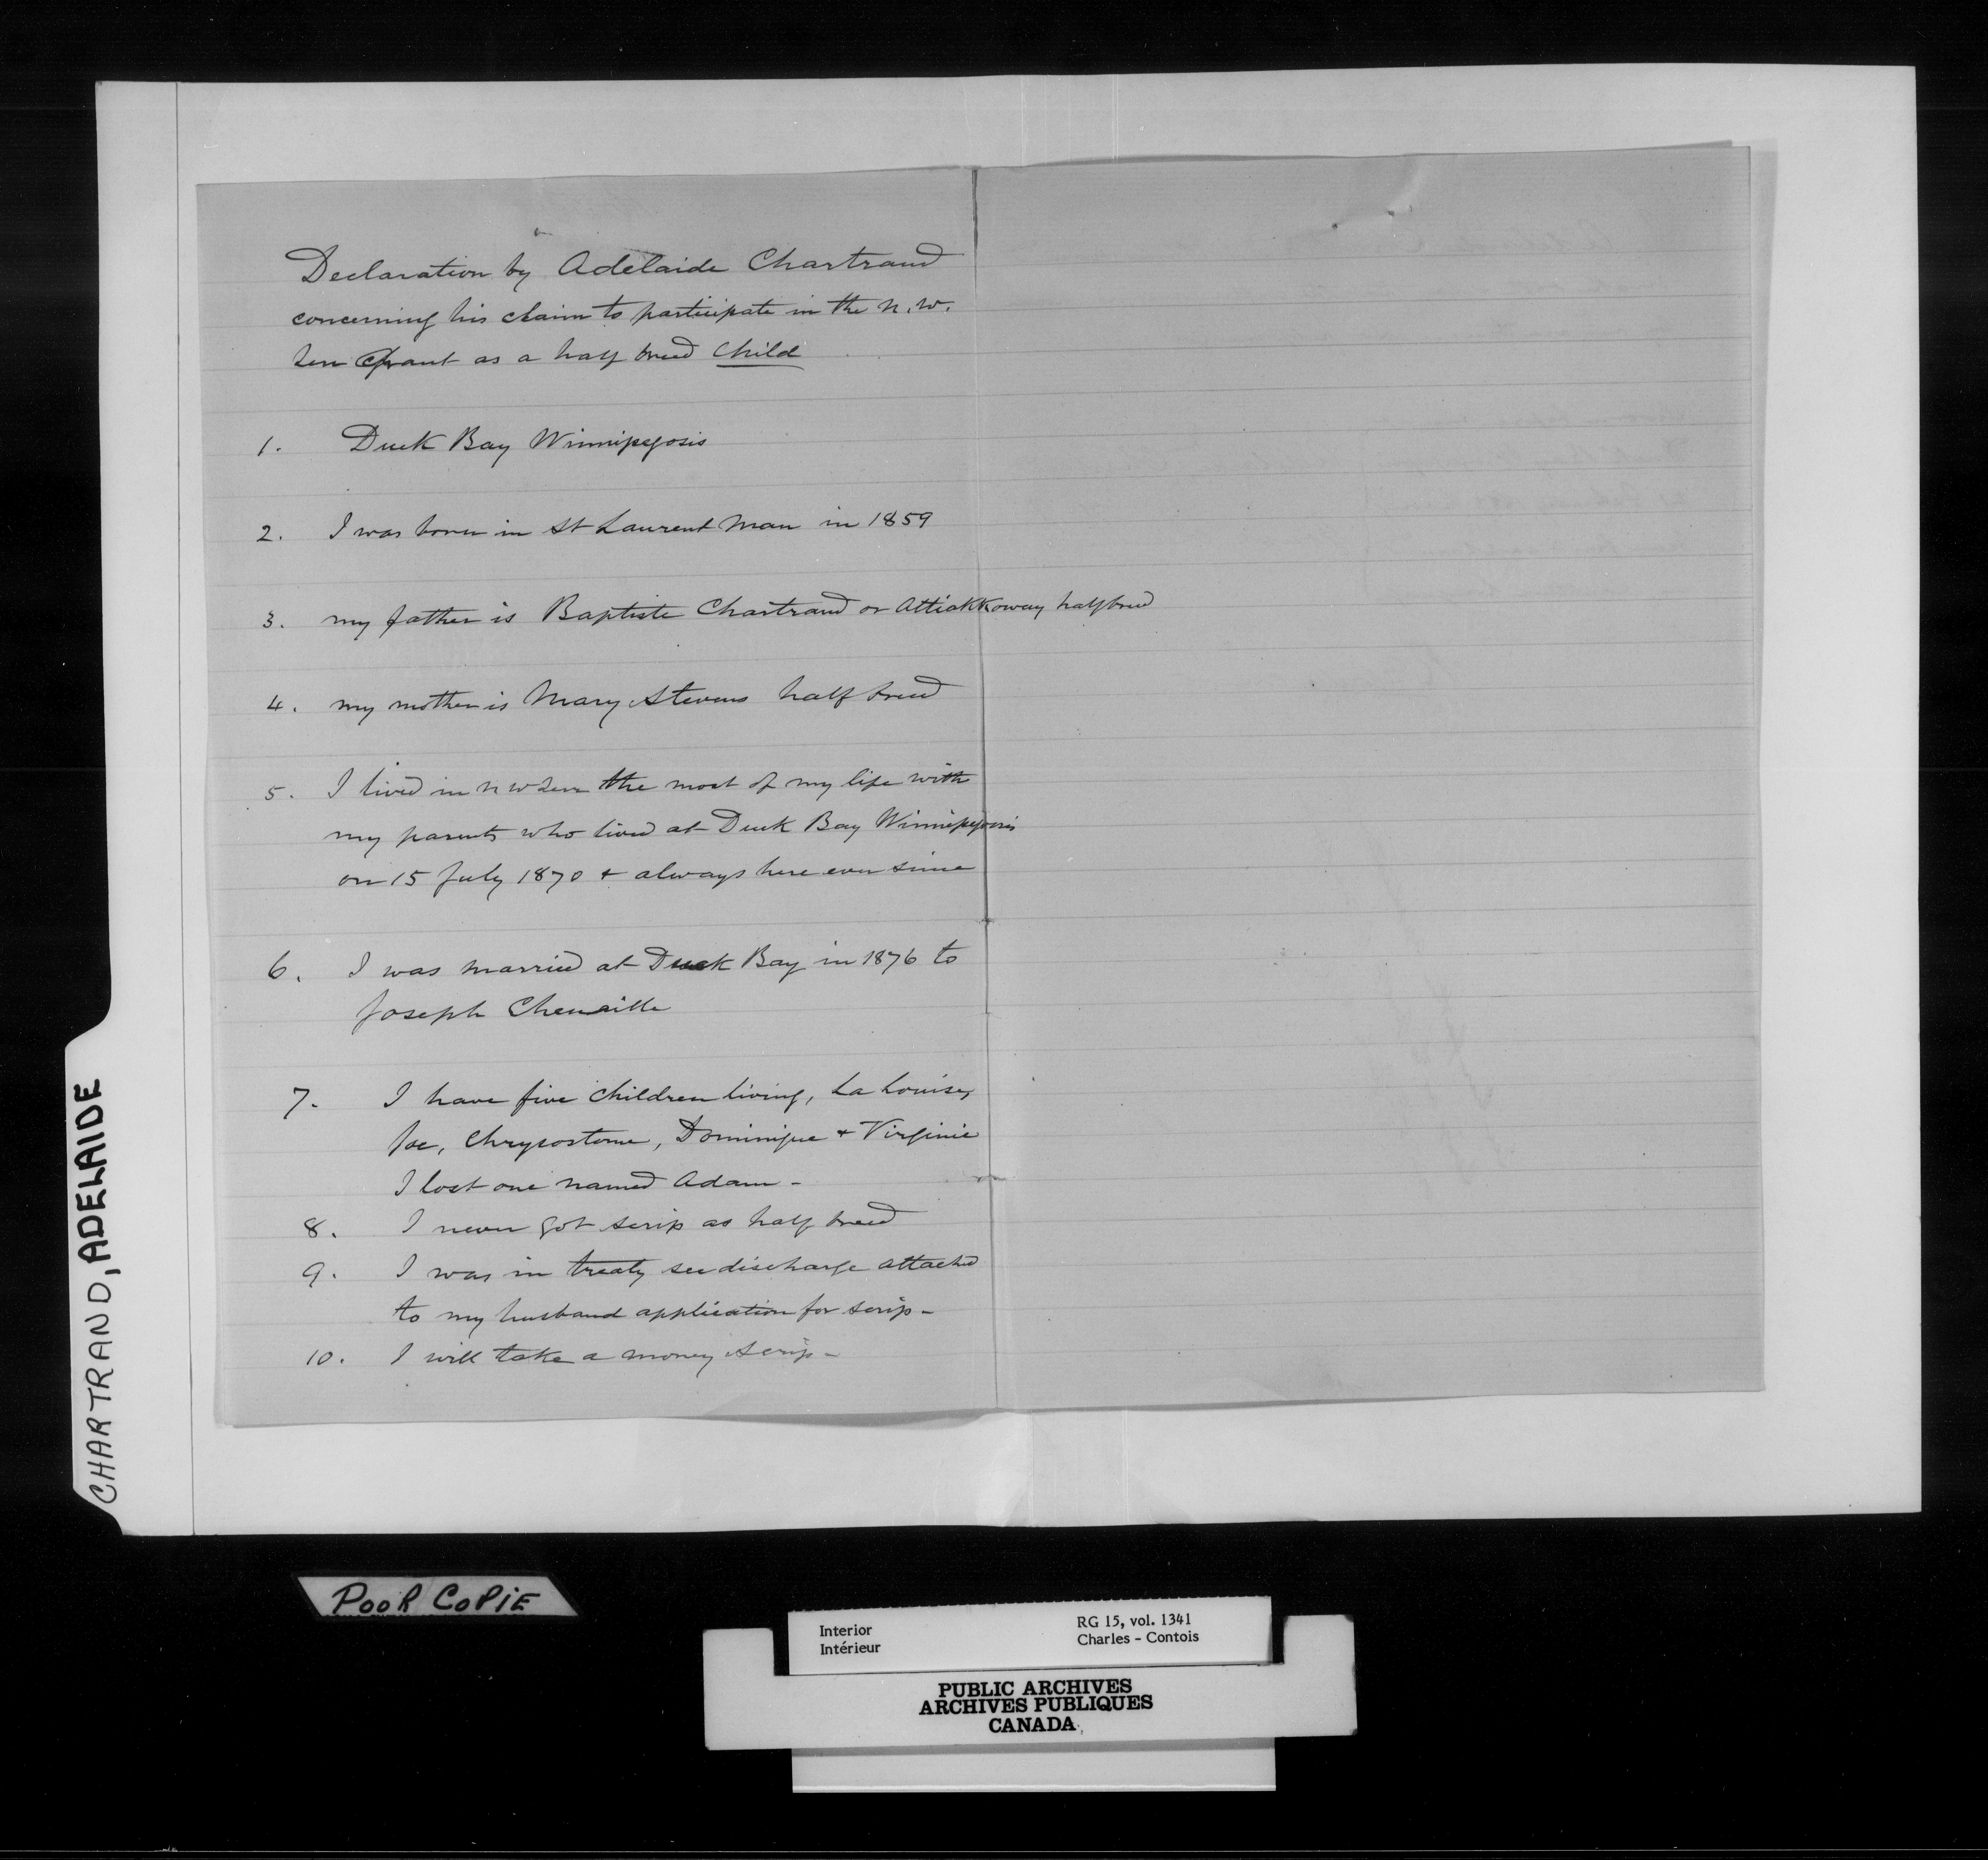 Declaration by Adelaide Chartrand
concerning his claim to participate in the N. W.
Terr Grant as a half breed Child
1. Duck Bay Winnipegosis
2. I was born in St Laurent Man in 1859
3. my father is Baptiste Chartrand or Attiakkoway halfbreed
4. my mother is Mary Stevens half breed
5. I lived in N W Terr the most of my life with
my parents who lived at Duck Bay Winnipegosis
on 15 July 1870 + always here ever since
6. I was married at Duck Bay in 1876 to
Joseph Chenaille
7. I have five children living, La Louise,
Joe, Chrysostome, Dominique + Virginie
I lost one named Adam -
8. I never got scrip as half breed
9. I was in treaty see discharge attached
to my husband application for scrip -
10. I will take a money scrip -
CHARTRAND, ADELAIDE
POOR COPIE
Interior
Intérieur
RG 15, vol. 1341
Charles - Contois
PUBLIC ARCHIVES
ARCHIVES PUBLIQUES
CANADA